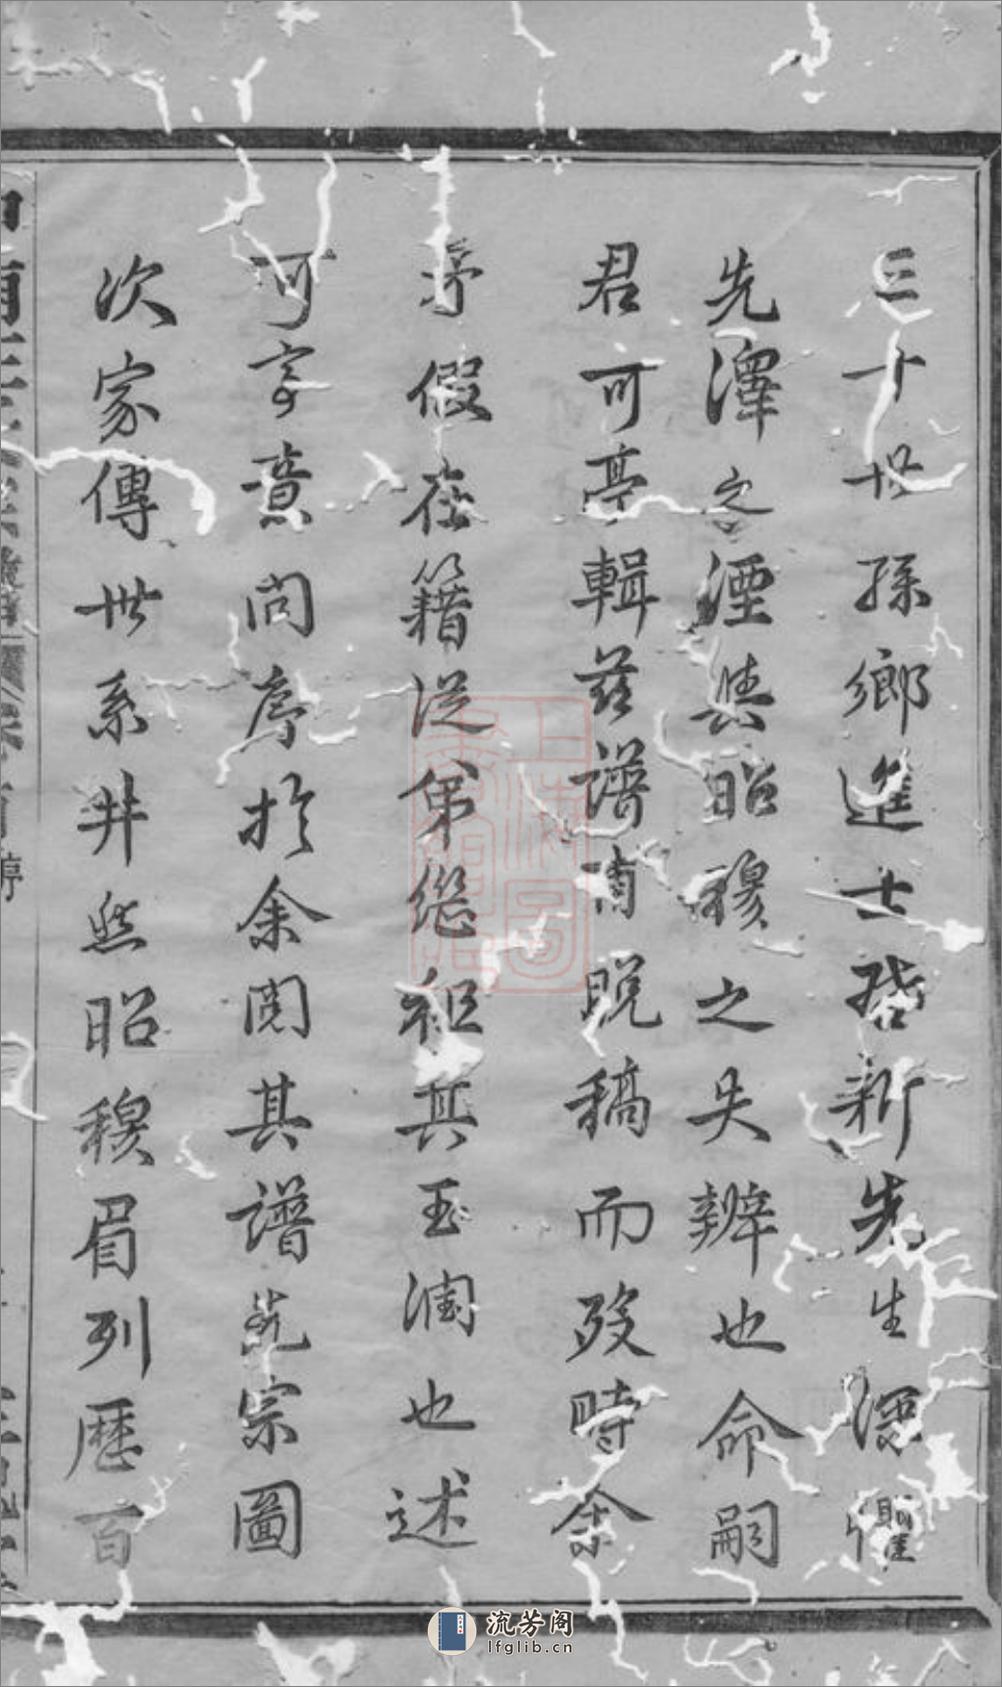 三十世孫鄉進士啓新先生深懼
先澤之湮與昭穆之失辨也命嗣
君可亭輯茲譜甫脫稿而歿時余
予假在籍從弟繼祖其玉潤也述
可亭意問序於余閱其譜先宗圖
次家傳世系井然昭穆眉列歷百
流芳阁
lfglib.cn